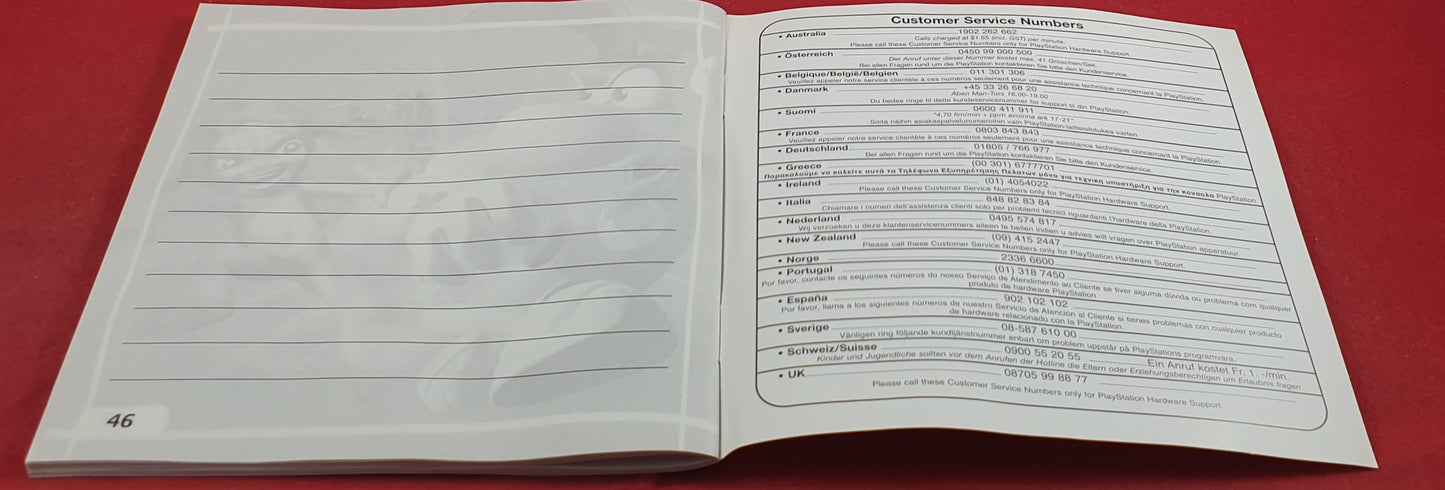 46
Customer Service Numbers
• Australia 1902 262 662
Calls charged at $1.65 (incl. GST) per minute.
Please call these Customer Service Numbers only for PlayStation Hardware Support.
• Österreich 0450 99 000 500
Der Anruf unter dieser Nummer kostet max. 41 Groschen/Sek.
Bei allen Fragen rund um die PlayStation kontaktieren Sie bitte den Kundenservice.
• Belgique/België/Belgien 011 301 306
Veuillez appeler notre service clientèle à ces numéros seulement pour une assistance technique concernant la PlayStation.
• Danmark +45 33 26 68 20
Åben Man-Tors 16.00-19.00
Du bedes ringe til dette kundeservicenummer for support til din PlayStation.
• Suomi 0600 411 911
"4,70 fim/min + ppm avoinna ark 17-21"
Soita näihin asiakaspalvelunumeroihin vain PlayStation-laitteistotukea varten
• France 0803 843 843
Veuillez appeler notre service clientèle à ces numéros seulement pour une assistance technique concernant la PlayStation.
• Deutschland 01805 / 766 977
Bei allen Fragen rund um die PlayStation kontaktieren Sie bitte den Kundenservice.
• Greece (00 301) 6777701
Παρακαλούμε να καλείτε αυτά τα Τηλέφωνα Εξυπηρέτησης Πελατών μόνο για τεχνική υποστήριξη για την κονσόλα PlayStation
• Ireland (01) 4054022
Please call these Customer Service Numbers only for PlayStation Hardware Support.
• Italia 848 82 83 84
Chiamare i numeri dell'assistenza clienti solo per problemi tecnici riguardanti l'hardware della PlayStation.
• Nederland 0495 574 817
Wij verzoeken u deze klantenservicenummers alleen te bellen indien u advies wilt vragen over PlayStation apparatuur.
• New Zealand (09) 415 2447
Please call these Customer Service Numbers only for PlayStation Hardware Support.
• Norge 2336 6600
• Portugal (01) 318 7450
Por favor, contacte os seguintes números do nosso Serviço de Atendimento ao Cliente se tiver alguma dúvida ou problema com qualquer
produto de hardware PlayStation
• España 902 102 102
Por favor, llama a los siguientes números de nuestro Servicio de Atención al Cliente si tienes problemas con cualquier producto
de hardware relacionado con la PlayStation.
• Sverige 08-587 610 00
Vänligen ring följande kundtjänstnummer enbart om problem uppstår på PlayStations programvara.
• Schweiz/Suisse 0900 55 20 55 Ein Anruf kostet Fr. 1. -/min.
Kinder und Jugendliche sollten vor dem Anrufen der Hotline die Eltern oder Erziehungsberechtigen um Erlaubnis fragen
• UK 08705 99 88 77
Please call these Customer Service Numbers only for PlayStation Hardware Support